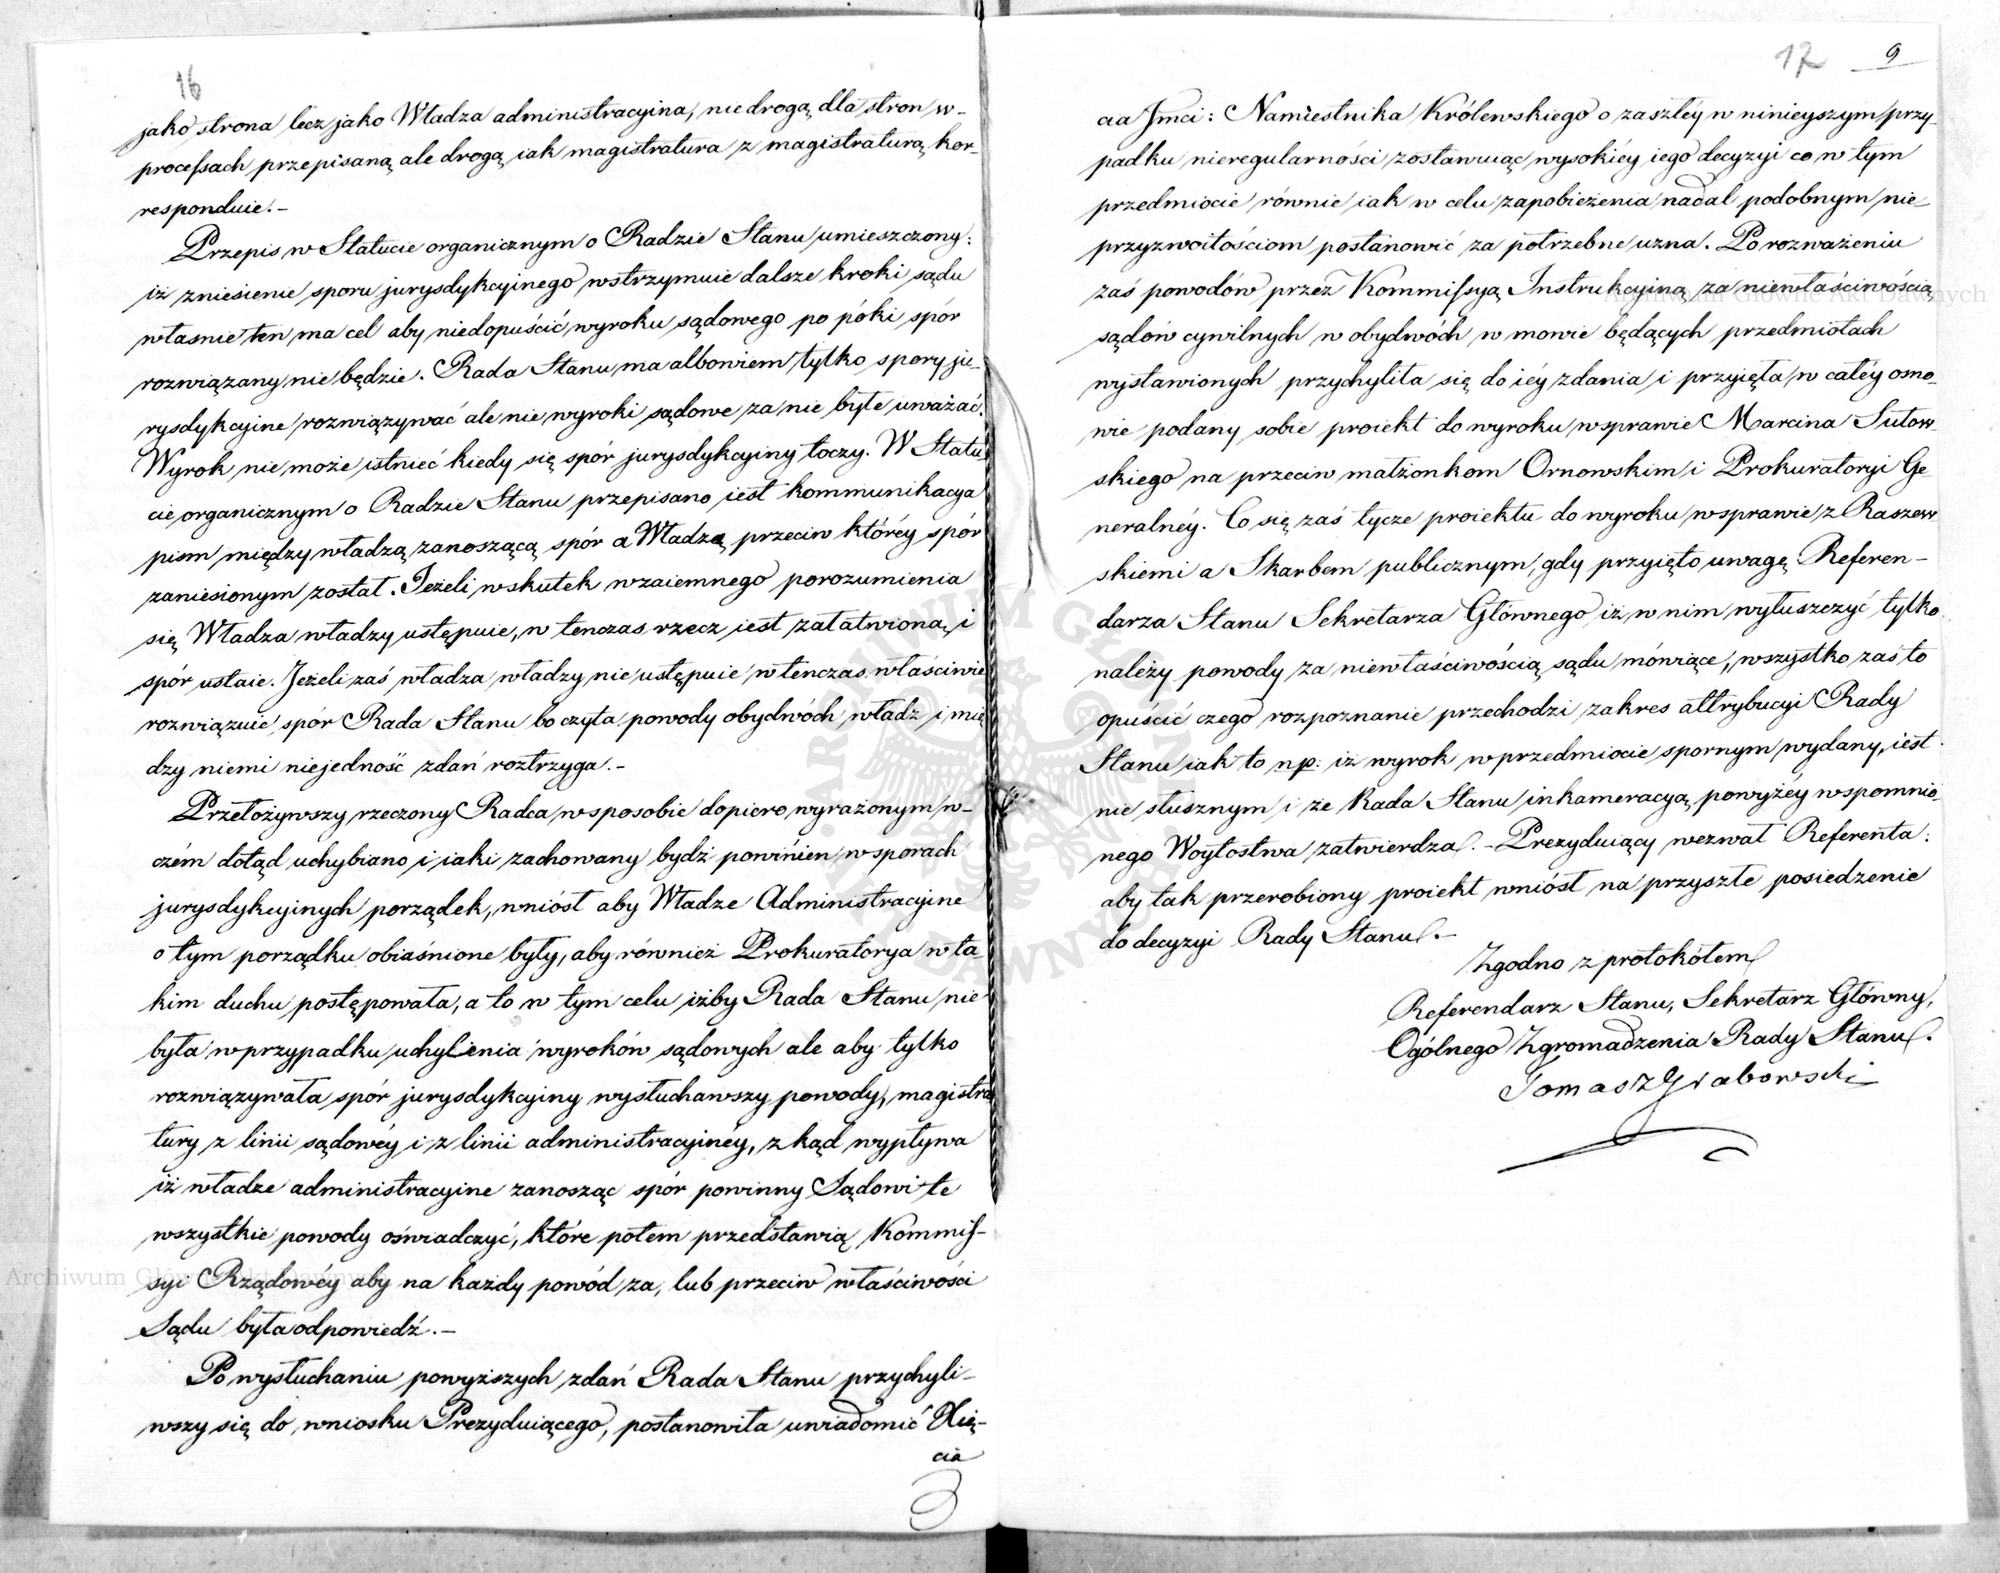 16
jako strona lecz jako Władza administracyina, nie drogą dla stron w-
processach przepisaną ale drogą iak magistratura z magistraturą kor-
responduie.-
Przepis w Statucie organicznym o Radzie Stanu umieszczony:
iż zniesienie sporu jurysdykcyinego wstrzymuie dalsze kroki sądu
własnie ten ma cel aby niedopuścić wyroku sądowego po póki spór
rozwiązany nie będzie. Rada Stanu ma albowiem tylko spory ju-
rysdykcyine rozwiązywać ale nie wyroki sądowe za nie byłe uważać.
Wyrok nie może istnieć kiedy się spór jurysdykcyiny toczy. W Statu
cie organicznym o Radzie Stanu przepisano iest kommunikacya
pism między władzą zanoszącą spór a Władzą przeciw któréy spór
zaniesionym został. Jeżeli wskutek wzaiemnego porozumienia
się Władza władzy ustępuie, w tenczas rzecz iest załatwioną i
spór ustaie. Jeżeli zaś władza władzy nie ustępuie wtenczas właściwie
rozwiązuie spór Rada Stanu bo czyta powody obydwóch władz i mię
dzy niemi niejedność zdań roztrzyga.-
Przełożywszy rzeczony Radca w sposobie dopiero wyrażonym w-
czém dotąd uchybiano i iaki zachowany bydź powinien w sporach
jurysdykcyinych porządek, wniósł aby Władze Administracyine
o tym porządku obiaśnione były, aby również Prokuratorya w ta
kim duchu postępowała, a to w tym celu iżby Rada Stanu nie
była w przypadku uchylenia wyroków sądowych ale aby tylko
rozwiązywała spór jurysdykcyiny wysłuchawszy powody magistra
tury z linii sądowéy i z linii administracyinéy, zkąd wypływa
iż władze administracyine zanosząc spór powinny Sądowi te
wszystkie powody oświadczyć, które potem przedstawią Kommis-
syi Rządowéy aby na każdy powód za, lub przeciw właściwości
Sądu była odpowiedź.-
Po wysłuchaniu powyższych zdań Rada Stanu przychyli-
wszy się do wniosku Prezyduiącego, postanowiła uwiadomić Xię-
cia
17 9
cia Jmci: Namiestnika Królewskiego o zaszłéy w ninieyszym przy-
padku nieregularności zostawuiąc wysokiéy iego decyzyi co w tym
przedmiocie równie iak w celu zapobieżenia nadal podobnym nie-
przyzwoitościom postanowić za potrzebne uzna. Po rozważeniu
zaś powodów przez Kommissyą Instrukcyiną za niewłaściwością
sądów cywilnych w obydwóch w mowie będących przedmiotach
wystawionych przychyliła się do iéy zdania i przyięła w całéy osno-
wie podany sobie proiekt do wyroku w sprawie Marcina Sutow-
skiego na przeciw małżonkom Ornowskim i Prokuratoryi Ge
neralnéy. Co się zaś tycze proiektu do wyroku w sprawie z Raszew-
skiemi a Skarbem publicznym, gdy przyięto uwagę Referen-
darza Stanu Sekretarza Głównego iż w nim wyłuszczyć tylko
należy powody za niewłaściwością sądu mówiące, wszystko zaś to
opuścić czego rozpoznanie przechodzi zakres attrybucyi Rady
Stanu iak to np: iż wyrok w przedmiocie spornym wydany, iest
nie słusznym i że Rada Stanu inkameracyą powyżéy wspomnio-
nego Woytostwa zatwierdza.- Prezyduiący wezwał Referenta:
aby tak przerobiony proiekt wniósł na przyszłe posiedzenie
do decyzyi Rady Stanu.-
Zgodno z protokółem
Referendarz Stanu, Sekretarz Główny,
Ogólnego Zgromadzenia Rady Stanu.
Tomasz Grabowski
Archiwum Główne Akt Dawnych